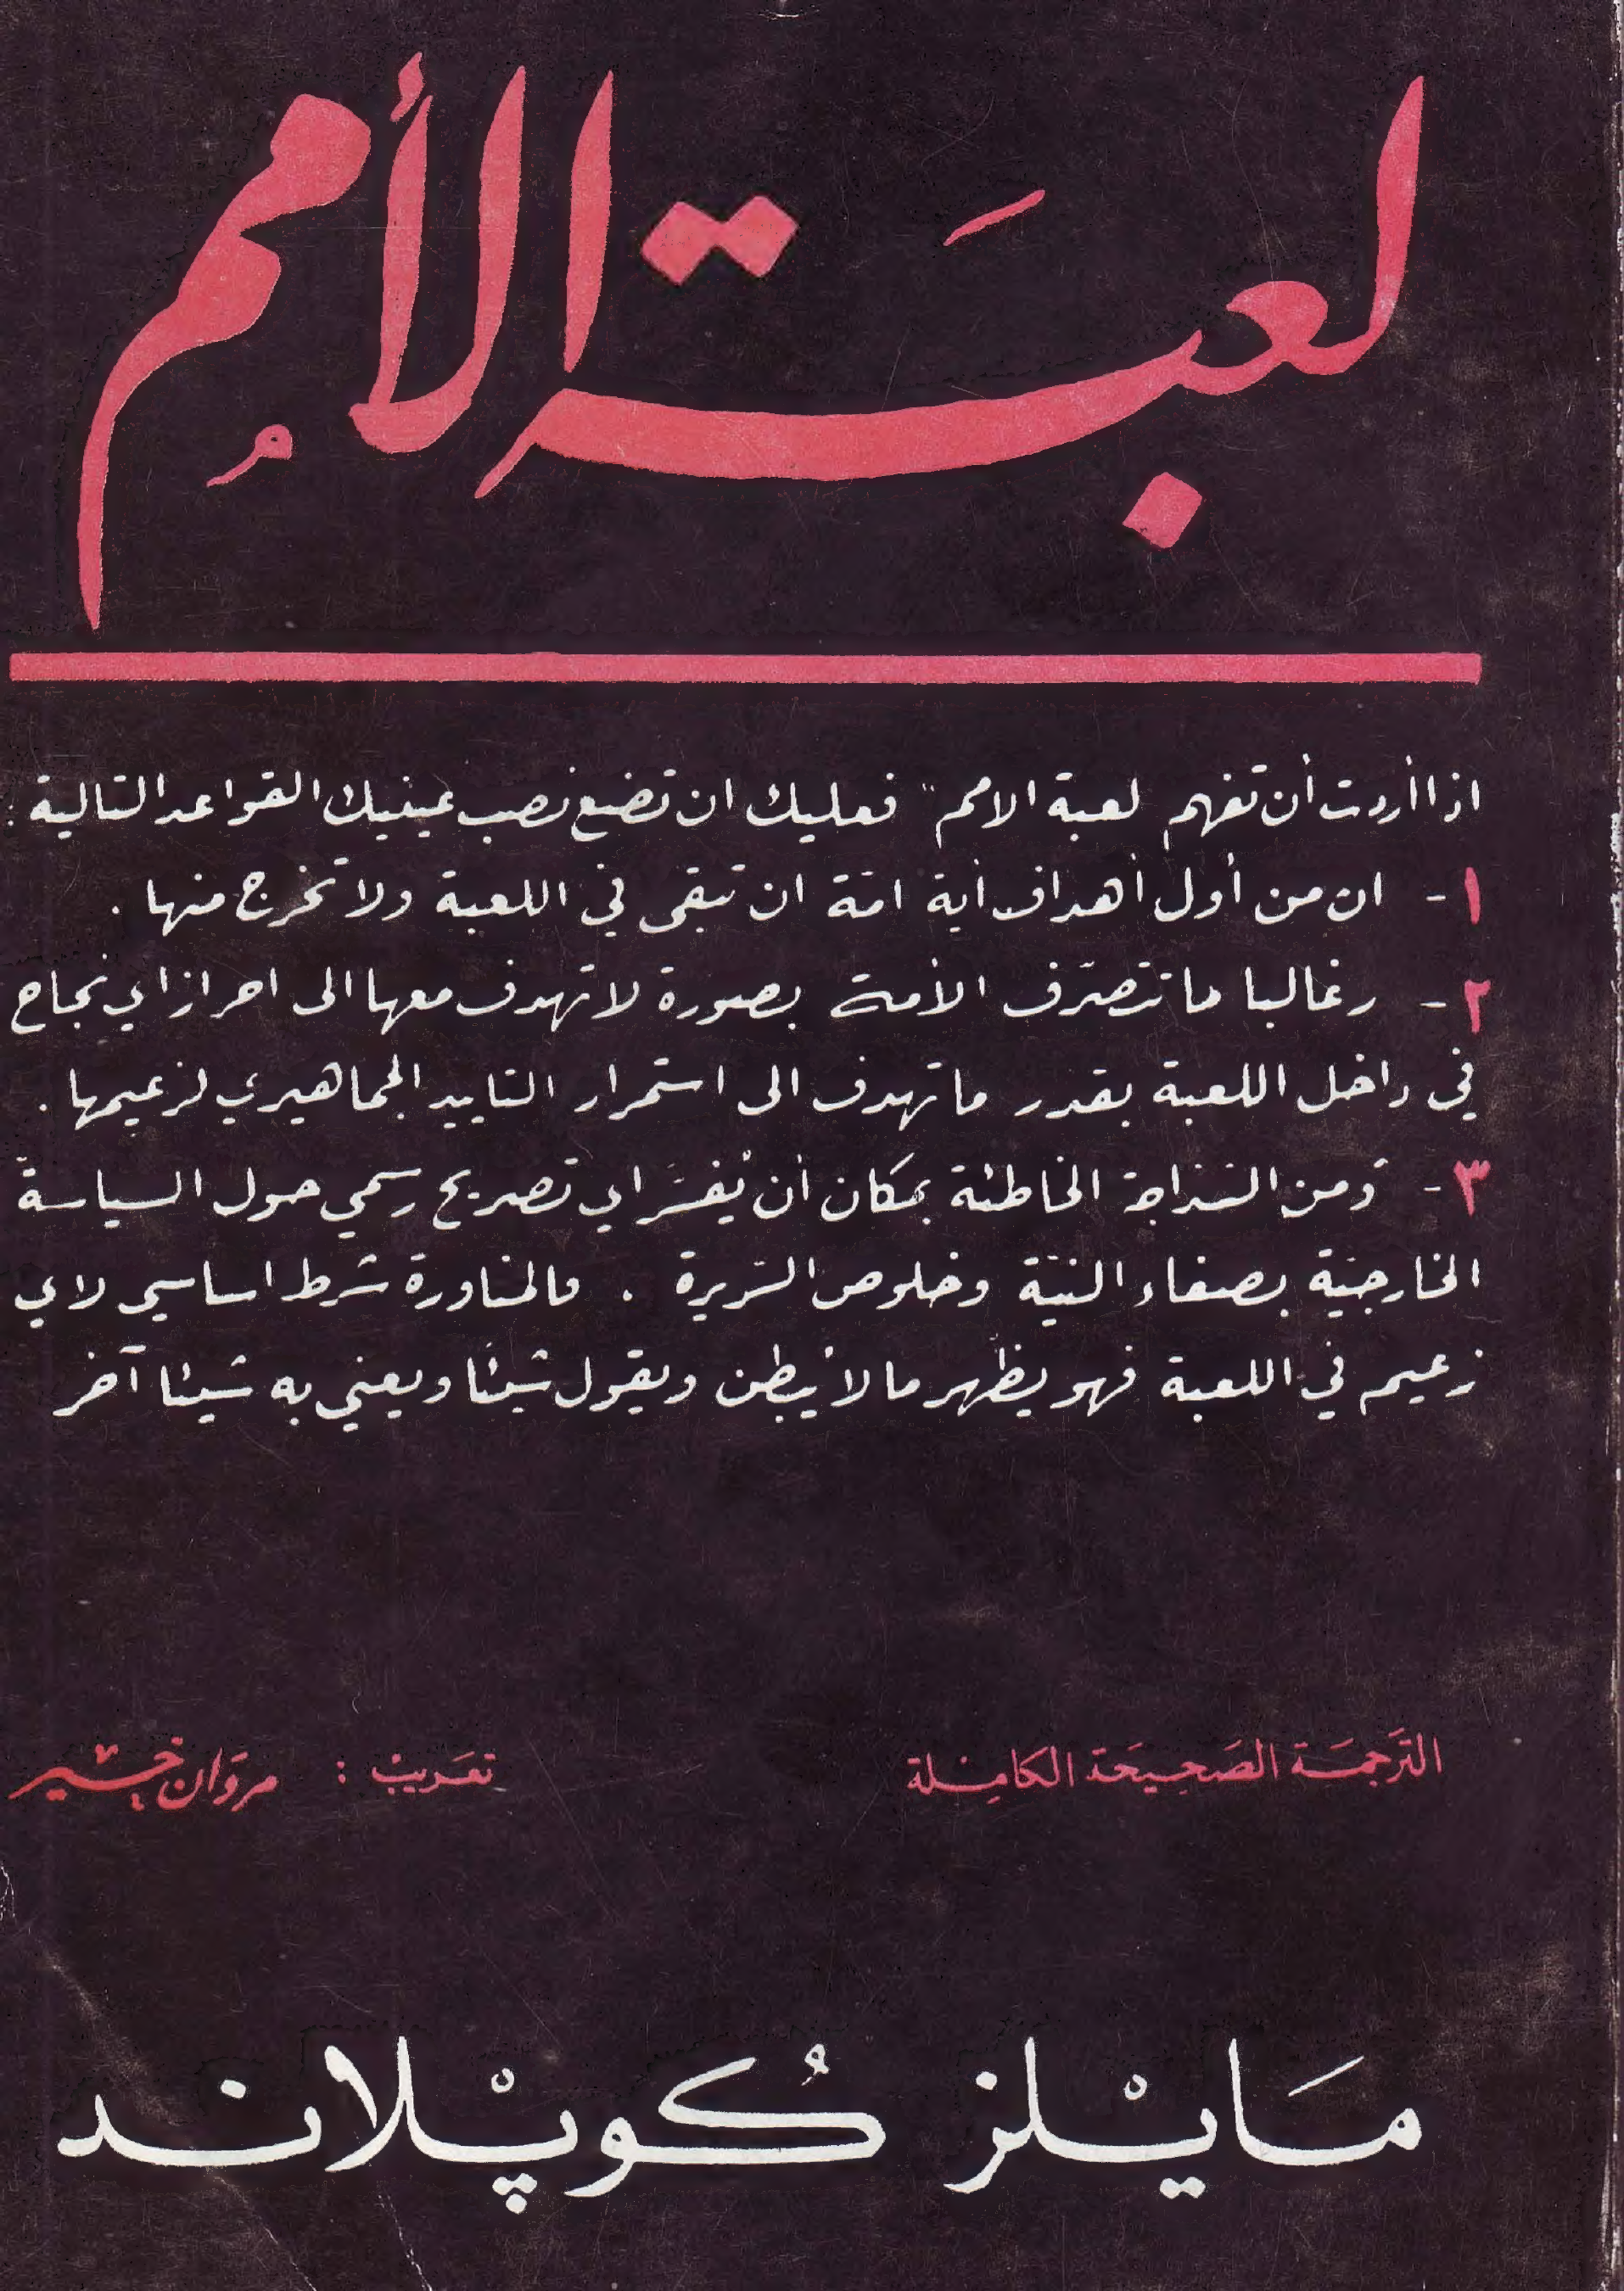 لعبَة الأممُ
اذا أردت أن تفهم لعبة الامم" فعليك ان تضع نصب عينيك القواعد التالية :
١ - ان من أول أهداف أية امة ان تبقى في اللعبة ولا تخرج منها .
٢ - وغالبا ما تتصرّف الأمة بصورة لا تهدف معها الى احراز اي نجاح
في داخل اللعبة بقدر ما تهدف الى استمرار التاييد الجماهيري لزعيمها .
٣ - ومن السذاجة الخاطئة بمكان أن يُفسَّر اي تصريح رسمي حول السياسة
الخارجيّة بصفاء النيّة وخلوص السّريرة . فالمناورة شرط اساسي لاي
زعيم في اللعبة فهو يظهر ما لا يُبطن ويقول شيئًا ويعني به شيئا آخر
الترَجمَة الصَحِيحَة الكامِلة
تعَريبْ : مروَان خيْر
مَايْلز كُوپْلاند